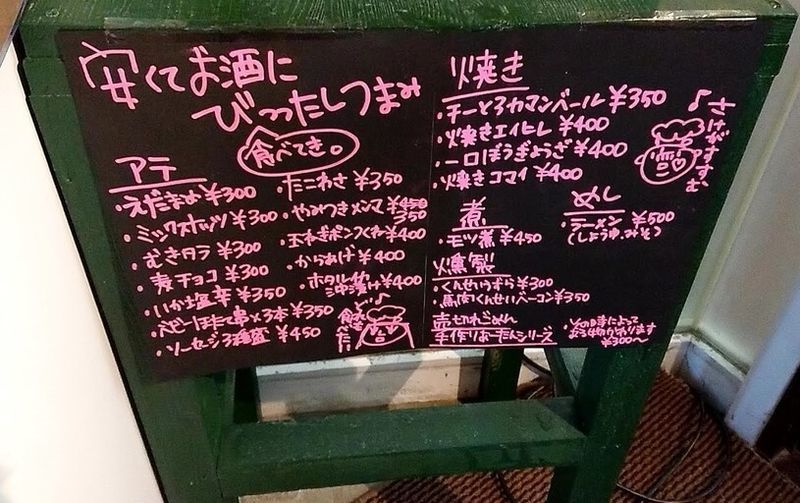 安くてお酒に
ぴったしつまみ
食べてき。
アテ
・えだまめ ¥300
・ミックスナッツ ¥300
・むきタラ ¥300
・麦チョコ ¥300
・いか塩辛 ¥350
・ベビーほたて串×3本 ¥350
・ソーセージ3種盛 ¥450
・たこわさ ¥350
・やみつきメンマ ¥450
350
・玉ねぎポンつくね ¥400
・からあげ ¥400
・ホタルイカ沖漬け ¥400
焼き
・チーとろカマンベール ¥350
・焼きエイヒレ ¥400
・一口ぼうぎょうざ ¥400
・焼きコマイ ¥400
♪さけがすすむ
煮
・モツ煮 ¥450
めし
・ラーメン ¥500
(しょうゆ、みそ)
燻製
・くんせいうずら ¥300
・馬肉くんせいベーコン ¥350
売切れごめん
手作りおーたんシリーズ
・その日時によって
ある物かわります
¥300〜